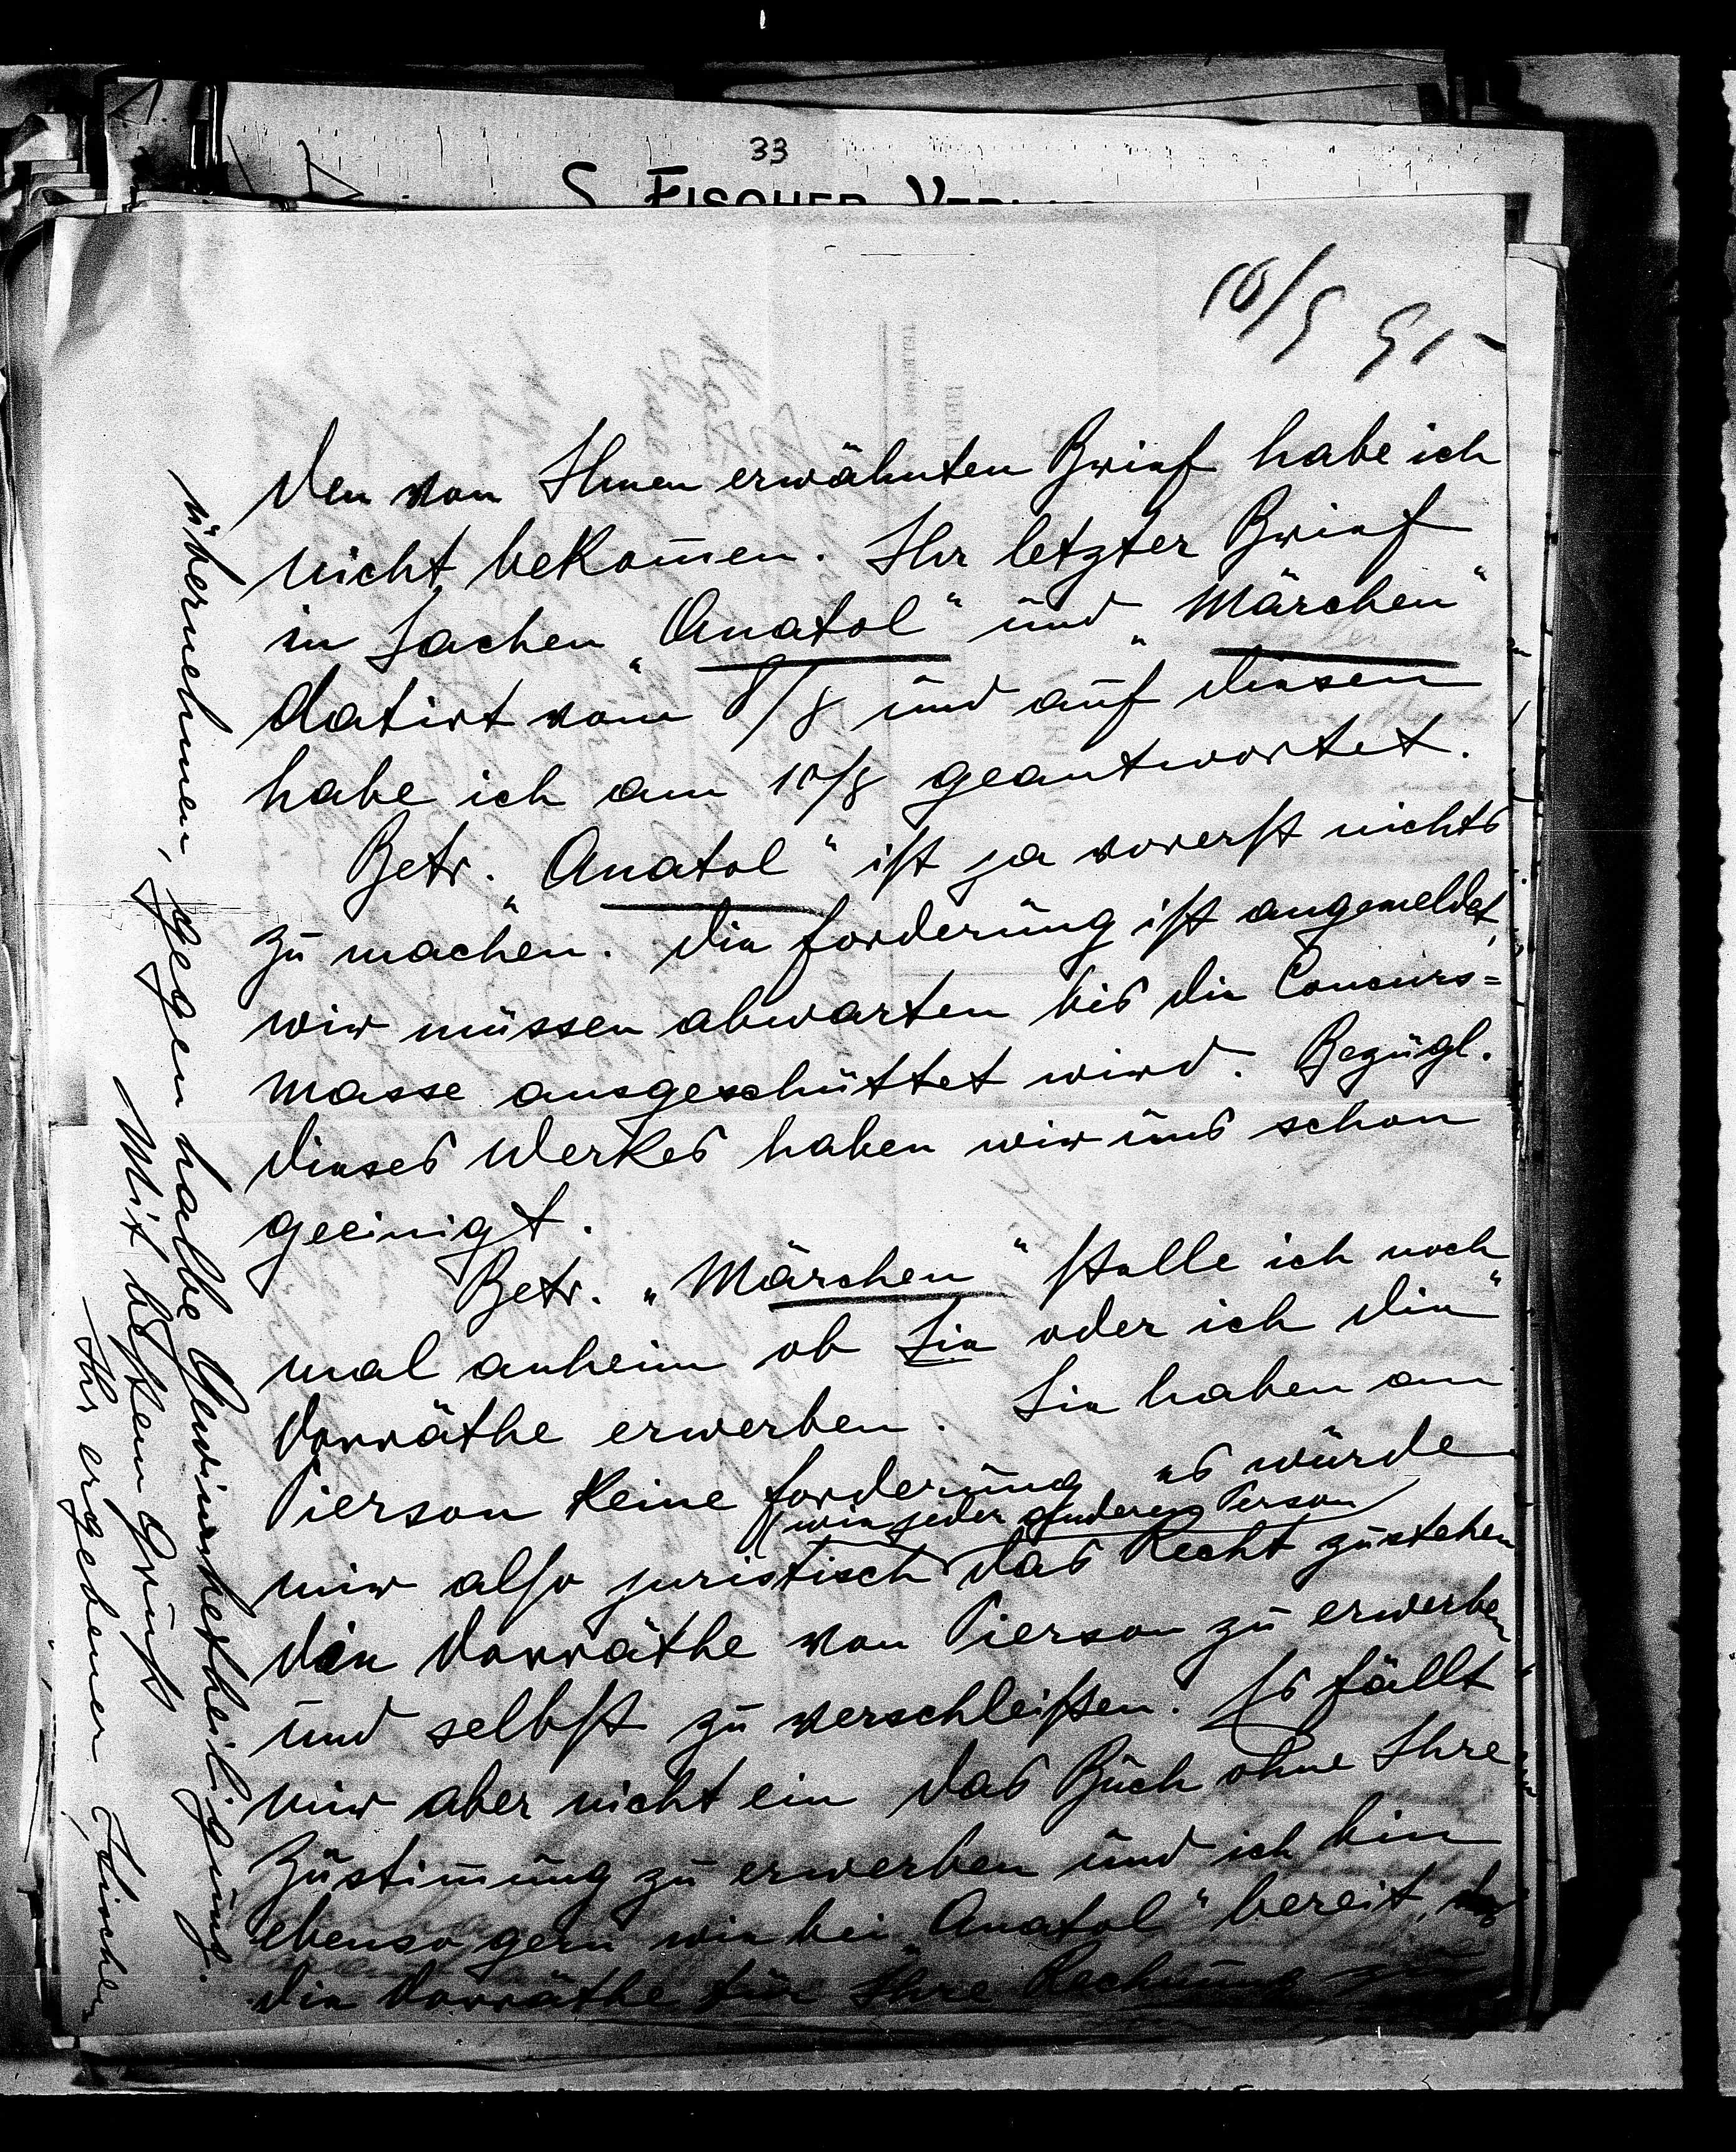 33
S. FISCHER VER
10/9 95
Den von Ihnen erwähnten Brief habe ich
nicht bekom̄en. Ihr letzter Brief
in Sachen „Anatol“ und „Märchen“
datirt vom 8/8 und auf diesen
habe ich am 10/8 geantwortet.
Betr. „Anatol“ ist ja vorerst nichts
zu machen. Die Forderung ist angemeldet,
wir müssen abwarten bis die Concurs=
masse ausgeschüttet wird. Bezügl.
dieses Werkes haben wir uns schon
geeinigt.
Betr. „Märchen“ stelle ich noch
mal anheim ob Sie oder ich die
Vorräthe erwerben. Sie haben an
Pierson keine Forderung es würde
wie jeder anderen Person
mir also juristisch das Recht zustehen
die Vorräthe von Pierson zu erwerben
und selbst zu verschleißen. Es fällt
mir aber nicht ein das Buch ohne Ihre
Zustim̄ung zu erwerben und ich bin
ebenso gern wie bei „Anatol“ bereit,
die Vorräthe für Ihre Rechnung zu
übernehmen, gegen halbe Gewinnbetheiligung.
Mit bestem Gruß
Ihr ergebener Fischer